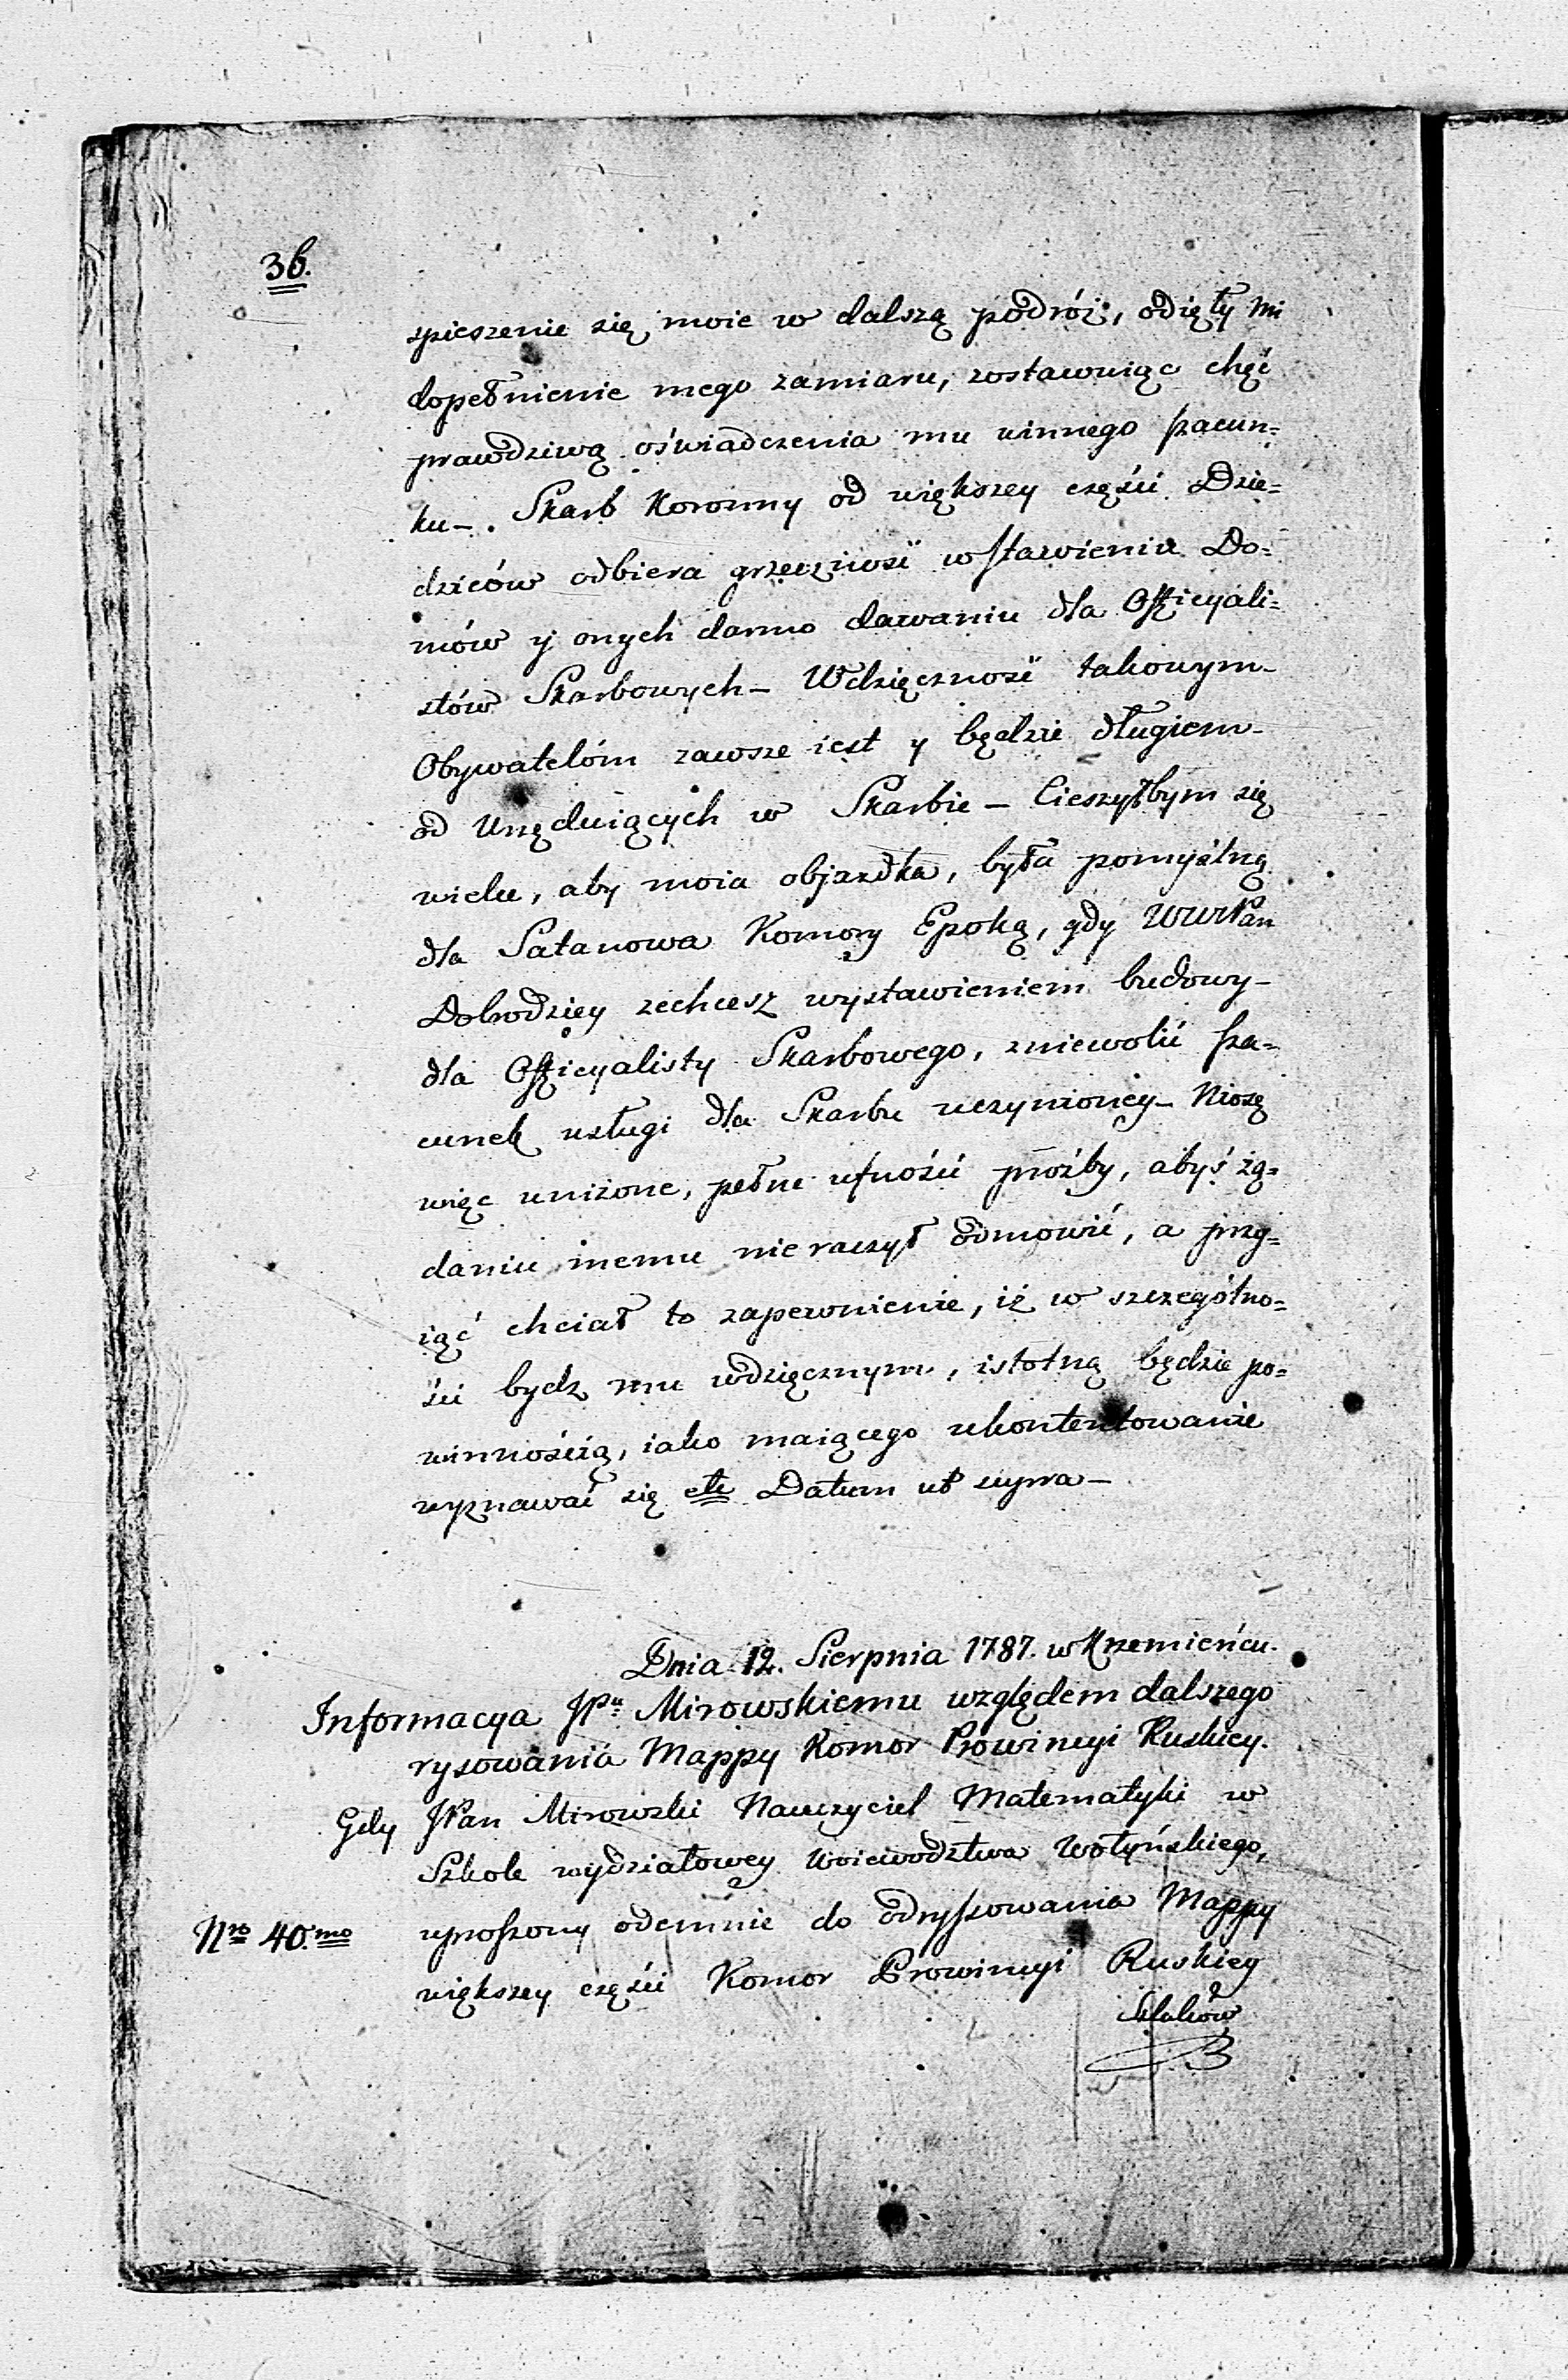 36.
spieszenie się moie w dalszą podróż, odięły mi
dopełnienie mego zamiaru, zostawuiąc chęć
prawdziwą oświadczenia mu winnego szacun=
ku—. Skarb Koronny od większey części Dzie=
dziców odbiera grzeczność wstawieniu Do=
mów y onych darmo dawaniu dla Officyali=
stów Skarbowych— Wdzięczność takowym—
Obywatelóm zawsze iest y będzie długiem—
od Urzęduiących w Skarbie — Cieszyłbym się
wielu, aby moia objazdka, była pomyślną
dla Satanowa Komory Epoką, gdy WWPan
Dobrodziey zechcesz wystawieniem budowy—
dla Officyalisty Skarbowego, zniewolić sza=
cunek usługi dla Skarbu uczynioney— Niosę
więc uniżone, pełne ufności proźby, abyś żą=
daniu memu nie raczył odmowić, a przy=
iąć chciał to zapewnienie, iż w szczególno=
ści bydz mu wdzięcznym, istotną będzie po=
winnością, iako maiącego ukontentowanie
wyznawać się etc Datum ut supra—
Dnia 12. Sierpnia 1787. w Krzemieńcu.
Informacya JPu Mirowskiemu względem dalszego
rysowania Mappy Komor Prowincyi Ruskiey.
Gdy JPan Mirowski Nauczyciel Matematyki w
Szkole wydziałowey Woiewodztwa Wołyńskiego,
Nro 40.mo uproszony odemnie do odrysowania Mappy
większey części Komor Prowincyi Ruskiey
Szlaków